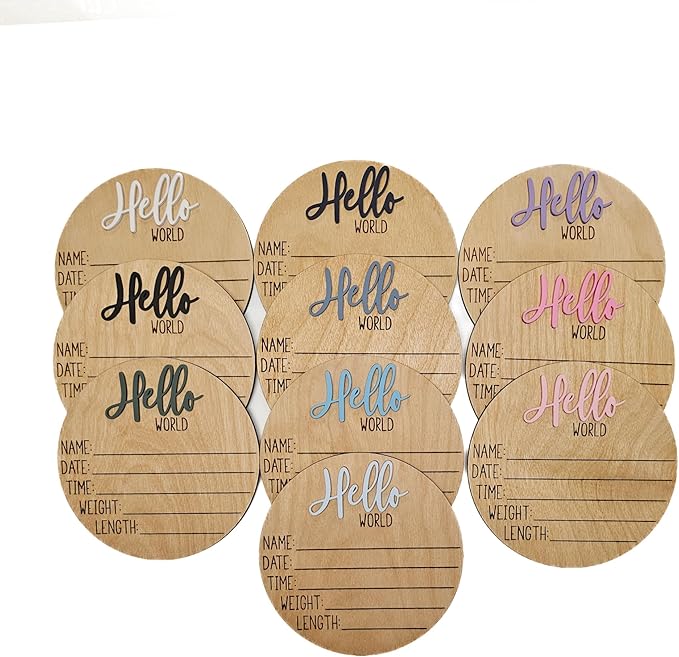 Hello
WORLD
NAME:
DATE:
TIME:
Hello
WORLD
NAME:
DATE:
TIME:
Hello
WORLD
NAME:
DATE:
TIME:
WEIGHT:
LENGTH:
Hello
WORLD
NAME:
DATE:
TIME:
Hello
WORLD
NAME:
DATE:
TIME:
Hello
WORLD
NAME:
DATE:
TIME:
Hello
WORLD
NAME:
DATE:
TIME:
WEIGHT:
LENGTH:
Hello
WORLD
NAME:
DATE:
TIME:
Hello
WORLD
NAME:
DATE:
TIME:
Hello
WORLD
NAME:
DATE:
TIME:
WEIGHT:
LENGTH: